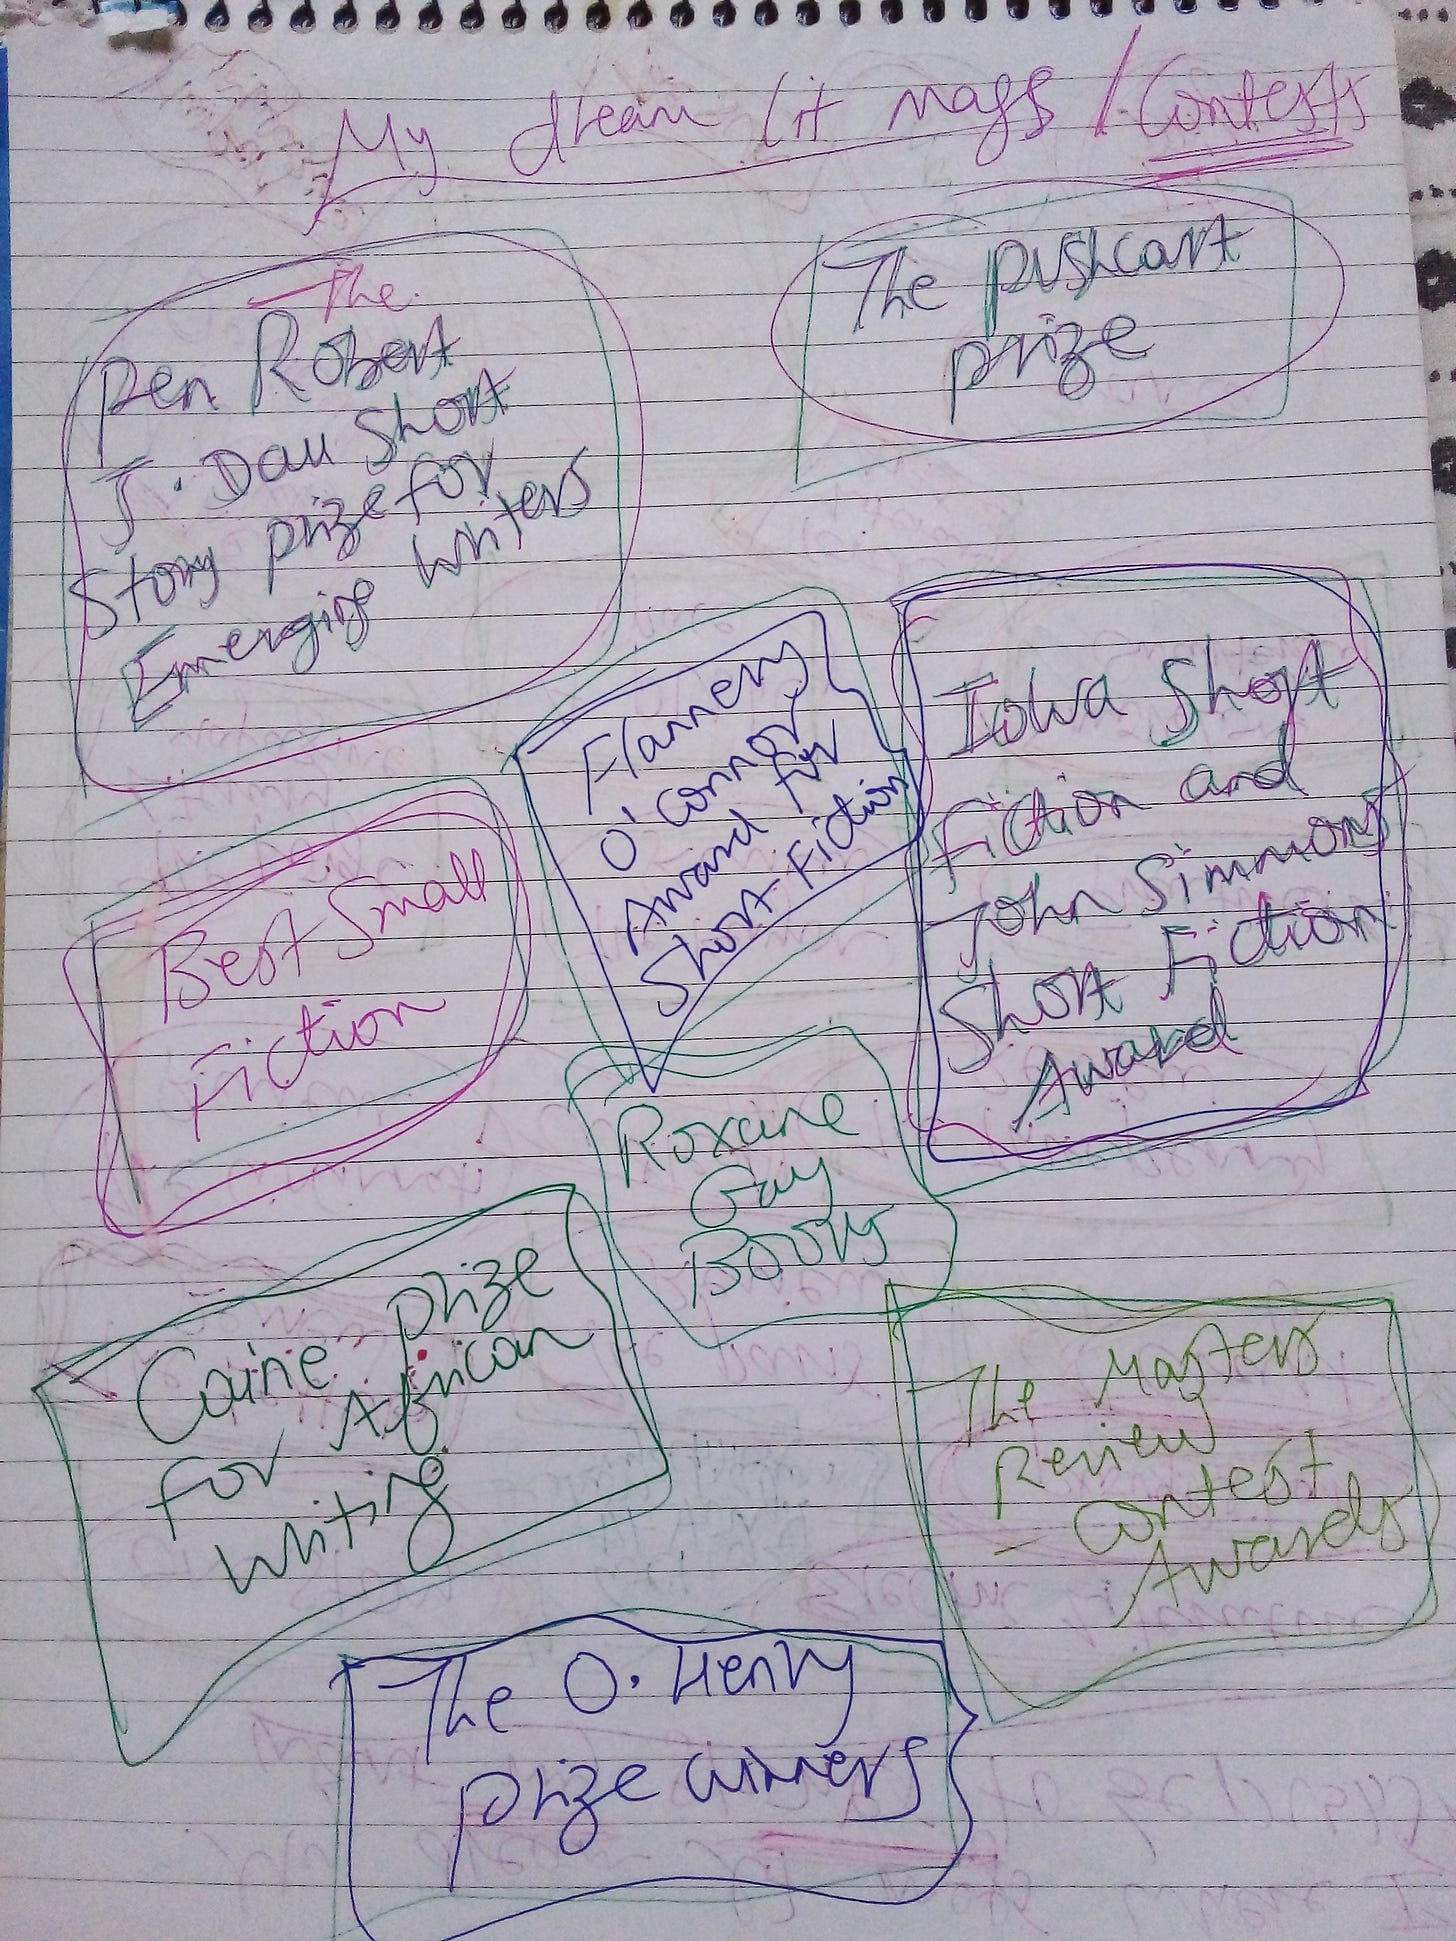 My dream lit mags / Contests
The
Pen Robert
J. Dau Short
Story prize for
Emerging writers
The pushcart
prize
Flannery
O'Connor
Award for
Short Fiction
Iowa Short
Fiction and
John Simmons
Short Fiction
Award
Best Small
Fiction
Roxane
Gay
Books
Caine prize
for African
writing
The Masters
Review
- Contest
Awards
The O. Henry
prize winners